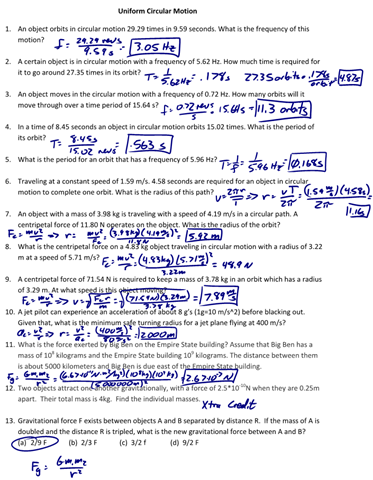 Uniform Circular Motion
1. An object orbits in circular motion 29.29 times in 9.59 seconds. What is the frequency of this
motion? f = 29.29 revs / 9.59 s = 3.05 Hz
2. A certain object is in circular motion with a frequency of 5.62 Hz. How much time is required for
it to go around 27.35 times in its orbit? T = 1 / 5.62 Hz = .178 s 27.35 orbits • .178 s / orbit = 4.87 s
3. An object moves in the circular motion with a frequency of 0.72 Hz. How many orbits will it
move through over a time period of 15.64 s? f = 0.72 revs / s • 15.64 s = 11.3 orbits
4. In time of 8.45 seconds an object in circular motion orbits 15.02 times. What is the period of
its orbit? T = 8.45 s / 15.02 revs = .563 s
5. What is the period for an orbit that has a frequency of 5.96 Hz? T = 1/f = 1 / 5.96 Hz = 0.168 s
6. Traveling at a constant speed of 1.59 m/s. 4.58 seconds are required for an object in circular
motion to complete one orbit. What is the radius of this path? v = 2πr / T => r = vT / 2π = (1.59 m/s)(4.58 s) / 2π = 1.16
7. An object with a mass of 3.98 kg is traveling with a speed of 4.19 m/s in a circular path. A
centripetal force of 11.80 N operates on the object. What is the radius of the orbit?
Fc = mv² / r => r = mv² / Fc = (3.98 kg)(4.19 m/s)² / 11.8 N = 5.92 m
8. What is the centripetal force on a 4.83 kg object traveling in circular motion with a radius of 3.22
m at a speed of 5.71 m/s? Fc = mv² / r = (4.83 kg)(5.71 m/s)² / 3.22 m = 48.9 N
9. A centripetal force of 71.54 N is required to keep a mass of 3.78 kg in an orbit which has a radius
of 3.29 m. At what speed is this object moving?
Fc = mv² / r => v = √ Fc r / m = √ (71.54 N)(3.29 m) / 3.78 kg = 7.89 m/s
10. A jet pilot can experience an acceleration of about 8 g's (1g=10 m/s^2) before blacking out.
Given that, what is the minimum safe turning radius for a jet plane flying at 400 m/s?
ac = v² / r => r = v² / ac = (400 m/s)² / 80 m/s² = 2000 m
11. What is the force exerted by Big Ben on the Empire State building? Assume that Big Ben has a
mass of 10⁸ kilograms and the Empire State building 10⁹ kilograms. The distance between them
is about 5000 kilometers and Big Ben is due east of the Empire State building.
Fg = G m₁ m₂ / r² = (6.67x10⁻¹¹ N·m²/kg²)(10⁸ kg)(10⁹ kg) / (5000000 m)² = 2.67x10⁻⁷ N
12. Two objects attract one another gravitationally, with a force of 2.5*10⁻¹⁰N when they are 0.25m
apart. Their total mass is 4kg. Find the individual masses. Xtra Credit
13. Gravitational force F exists between objects A and B separated by distance R. If the mass of A is
doubled and the distance R is tripled, what is the new gravitational force between A and B?
(a) 2/9 F (b) 2/3 F (c) 3/2 f (d) 9/2 F
Fg = G m₁ m₂ / r²